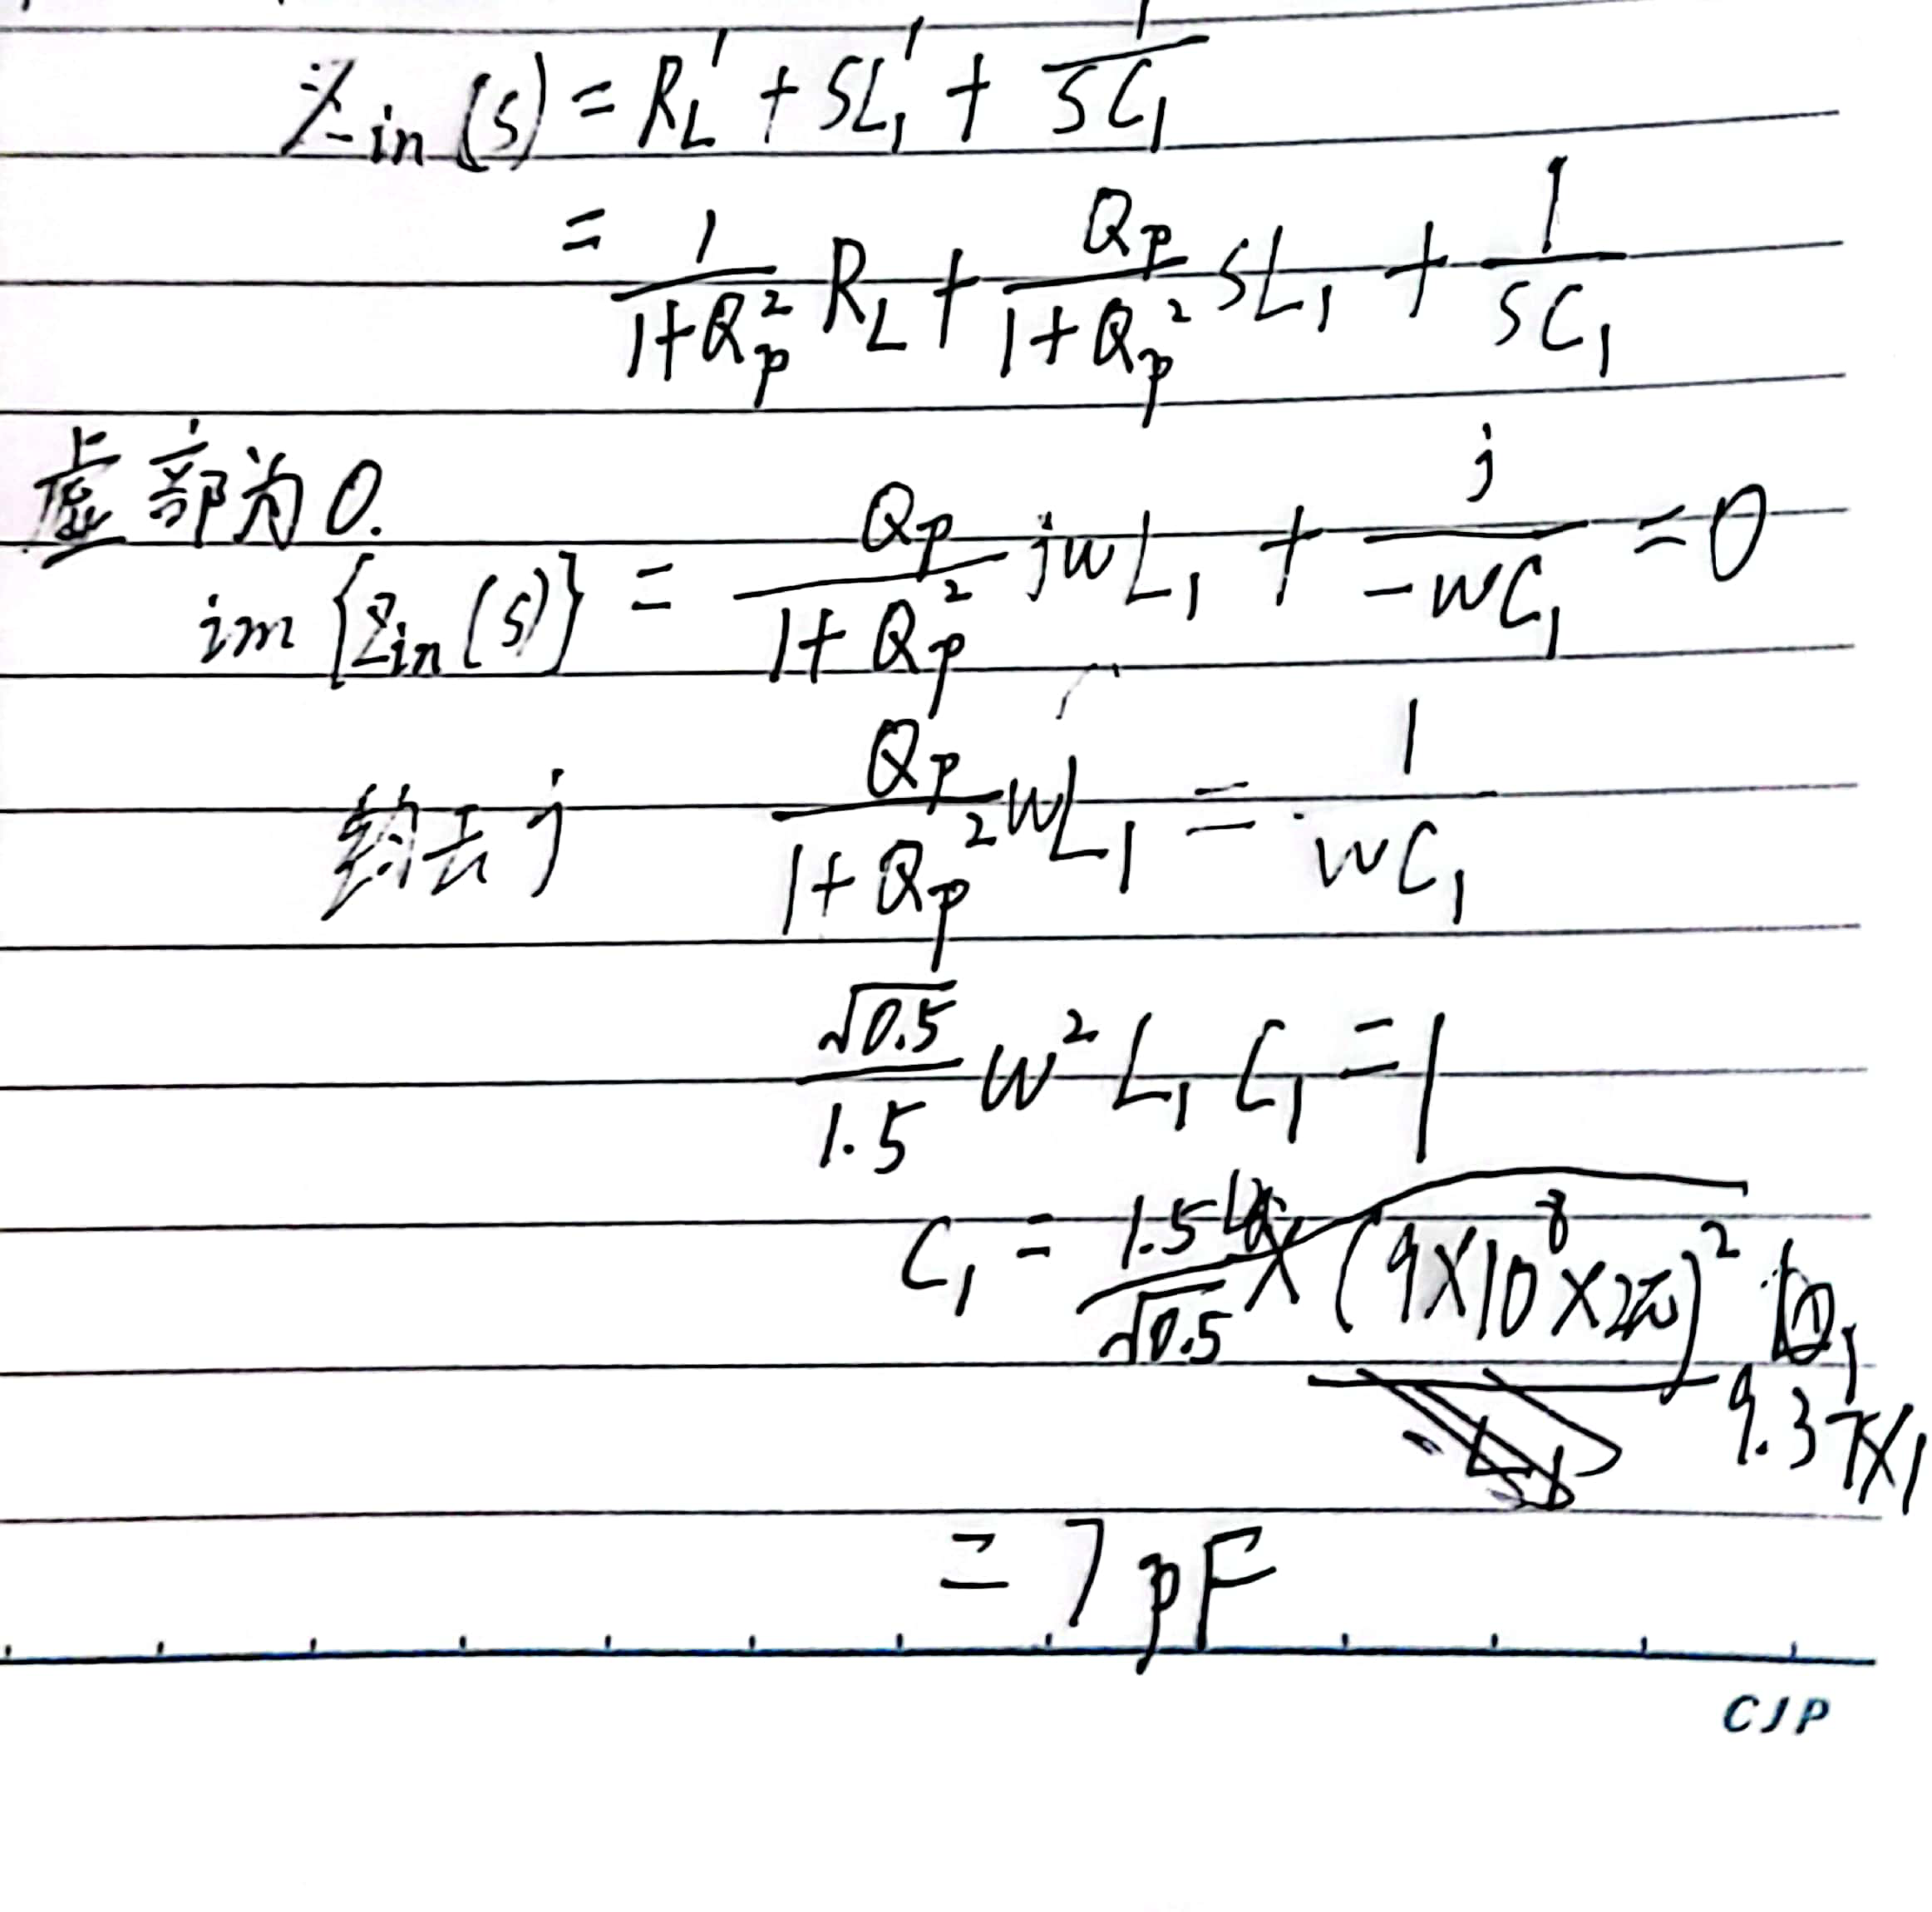 Zin(s) = RL' + SL1' + 1/SC1
= 1/(1+Qp²) RL + Qp/(1+Qp²) SL1 + 1/SC1
虚部为0.
im{Zin(s)} = Qp/(1+Qp²) jwL1 + j/(-wC1) = 0
约去j Qp/(1+Qp²) wL1 = 1/wC1
√0.5/1.5 w² L1 C1 = 1
C1 = 1.5/√0.5 × (9×10⁸×2π)²
9.37×1
= 7 pF
CJP